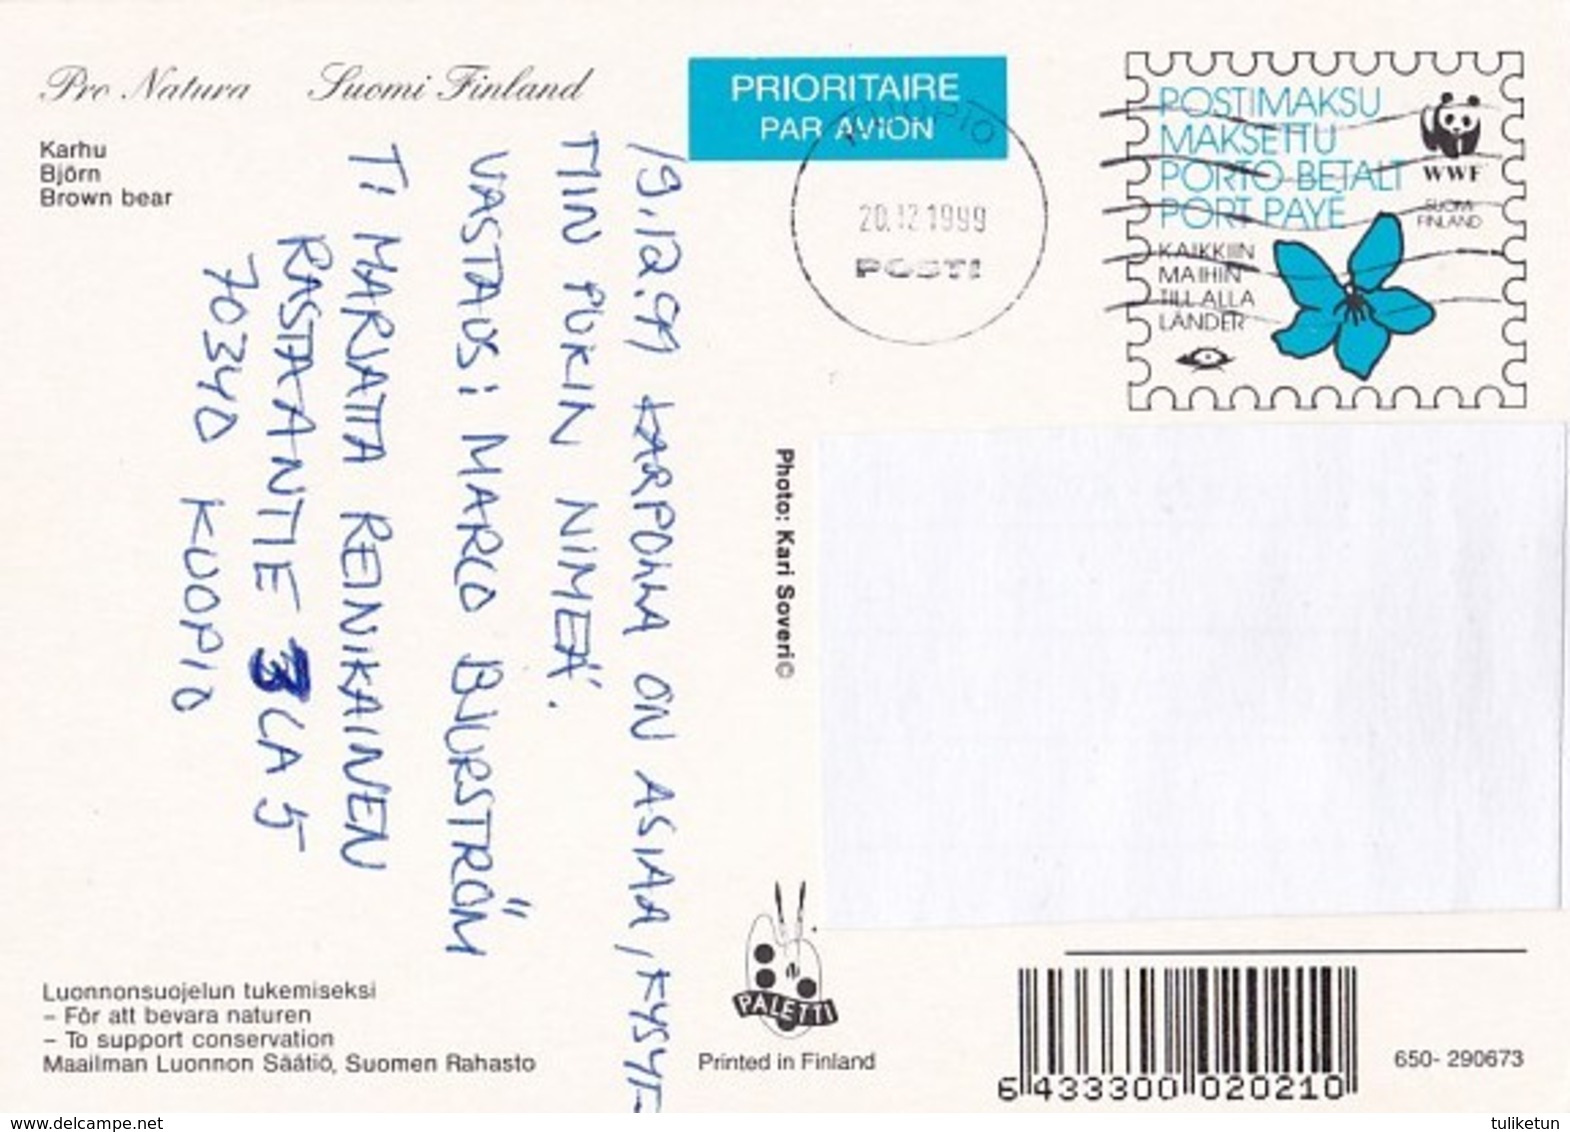 Pro Natura Suomi Finland
Karhu
Björn
Brown bear
PRIORITAIRE
PAR AVION
KUOPIO
20.12.1999
POSTI
POSTIMAKSU
MAKSETTU
PORTO BETALT
PORT PAYÉ
KAIKKIIN
MAIHIN
TILL ALLA
LÄNDER
WWF
SUOMI
FINLAND
19.12.99 KARPOLLA ON ASIAA, KYSYT-
TIIN PUKIN NIMEÄ.
VASTAUS: MARCO BJURSTRÖM
T: MARJATTA REINIKAINEN
RASTAANTIE 3 LA 5
70340 KUOPIO
Photo: Kari Soveri©
Luonnonsuojelun tukemiseksi
– För att bevara naturen
– To support conservation
Maailman Luonnon Säätiö, Suomen Rahasto
PALETTI
Printed in Finland
6 433300 020210
650- 290673
www.delcampe.net
tuliketun